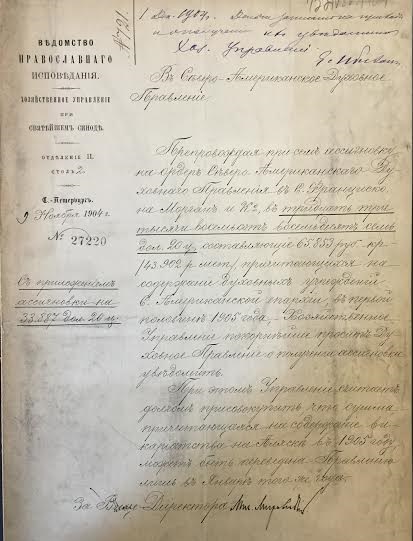 № 721.
1 Дек. 1904.
Хоз. Управленiй
ВѢДОМСТВО
ПРАВОСЛАВНАГО
ИСПОВѢДАНIЯ.
ХОЗЯЙСТВЕННОЕ УПРАВЛЕНIЕ
ПРИ
СВЯТѢЙШЕМЪ СИНОДѢ.
ОТДѢЛЕНIЕ II.
СТОЛЪ
С.-Петербургъ.
9 Ноября 1904 г.
№ 27220
Съ приложенiемъ
ассигновки на
33.887 дол. 20 ц.
Въ Сѣверо-Американское Духовное
Правленiе.
Препровождая при семъ ассигновку
на ордеръ Сѣверо-Американскаго Ду-
ховнаго Правленiя въ С. Франциско,
на Морганъ и Кº, въ тридцать три
тысячи восемьсотъ восемьдесятъ семь
дол. 20 ц., составляющiе 65.853 руб. кр.
причитающiяся на
содержанiе духовныхъ учрежденiй
С. Американской епархiи, въ первой
половинѣ 1905 года, Хозяйственное
Управленiе покорнѣйше проситъ Ду-
ховное Правленiе о полученiи ассигновки
увѣдомить.
При этомъ Управленiе считаетъ
долгомъ присовокупить, что сумма
причитающаяся на содержанiе ви-
карiатства на Аляскѣ въ 1905 году,
можетъ быть переведена Правленiю
лишь въ Январѣ того же года.
За Вице-Директора